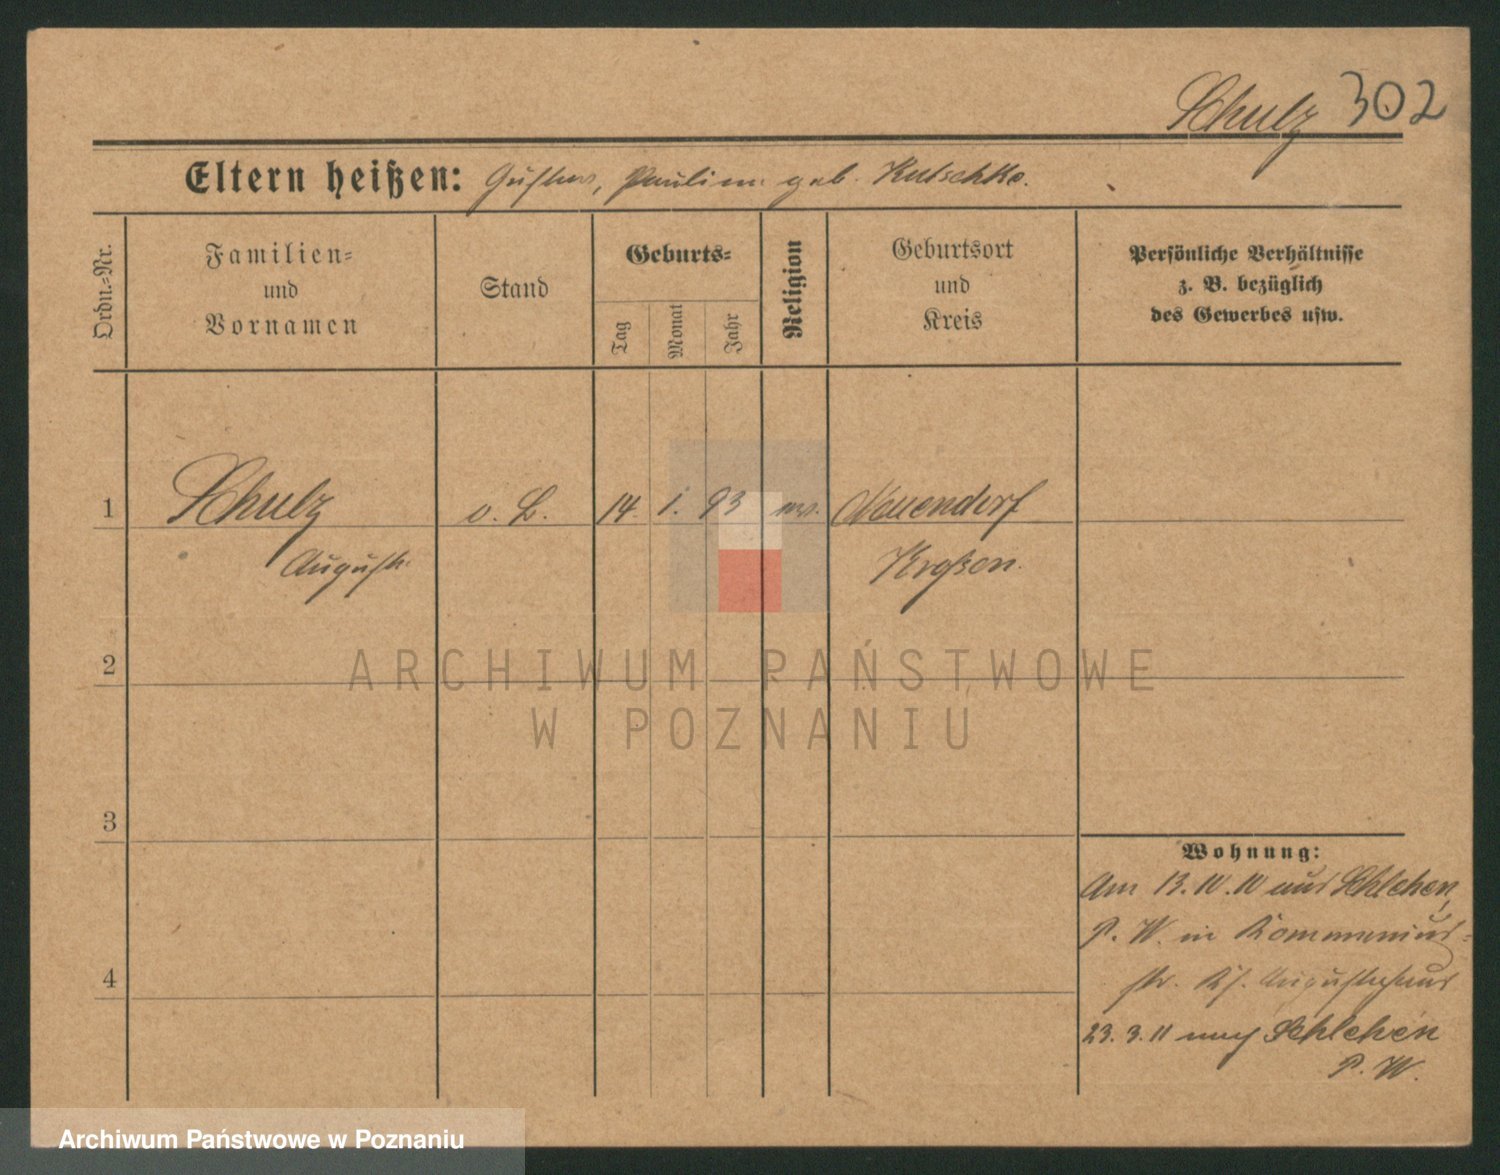 Schulz 302
Eltern heißen: Gustav, Pauline geb. Kutschke.
Ordn.-Nr.
Familien-
und
Vornamen
Stand
Geburts-
Tag
Monat
Jahr
Religion
Geburtsort
und
Kreis
Persönliche Verhältnisse
z. B. bezüglich
des Gewerbes usw.
1 Schulz 14. 1. 93 Neuendorf
August Kroßen.
2
ARCHIWUM PAŃSTWOWE
W POZNANIU
3
4
Wohnung:
Am 13. 10. 10 aus Schlehen,
P. W. in
23. 3. 11 nach Schlehen
P. W.
Archiwum Państwowe w Poznaniu